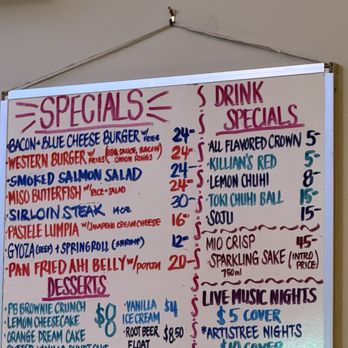 SPECIALS
BACON + BLUE CHEESE BURGER w/ FRIES 24-
WESTERN BURGER w/ FRIES (BBQ SAUCE, BACON, ONION RINGS) 24-
SMOKED SALMON SALAD 24-
MISO BUTTERFISH w/ RICE + SALAD 24-
SIRLOIN STEAK 14OZ 30-
PASTELE LUMPIA w/ JALAPENO CREAM CHEESE 16-
GYOZA (BEEF) + SPRING ROLL (SHRIMP) 12-
PAN FRIED AHI BELLY w/ PONZU 20-
DESSERTS
PB BROWNIE CRUNCH
LEMON CHEESECAKE
ORANGE DREAM CAKE
$8
VANILLA ICE CREAM $4
ROOT BEER FLOAT $8.50
DRINK
SPECIALS
ALL FLAVORED CROWN 5-
KILLIAN'S RED 5-
LEMON CHUHI 8-
TOKI CHUHI BALL 15-
SOJU 15-
MIO CRISP 45-
SPARKLING SAKE (INTRO PRICE)
750ml
LIVE MUSIC NIGHTS
$5 COVER
*ARTISTREE NIGHTS
$10 COVER